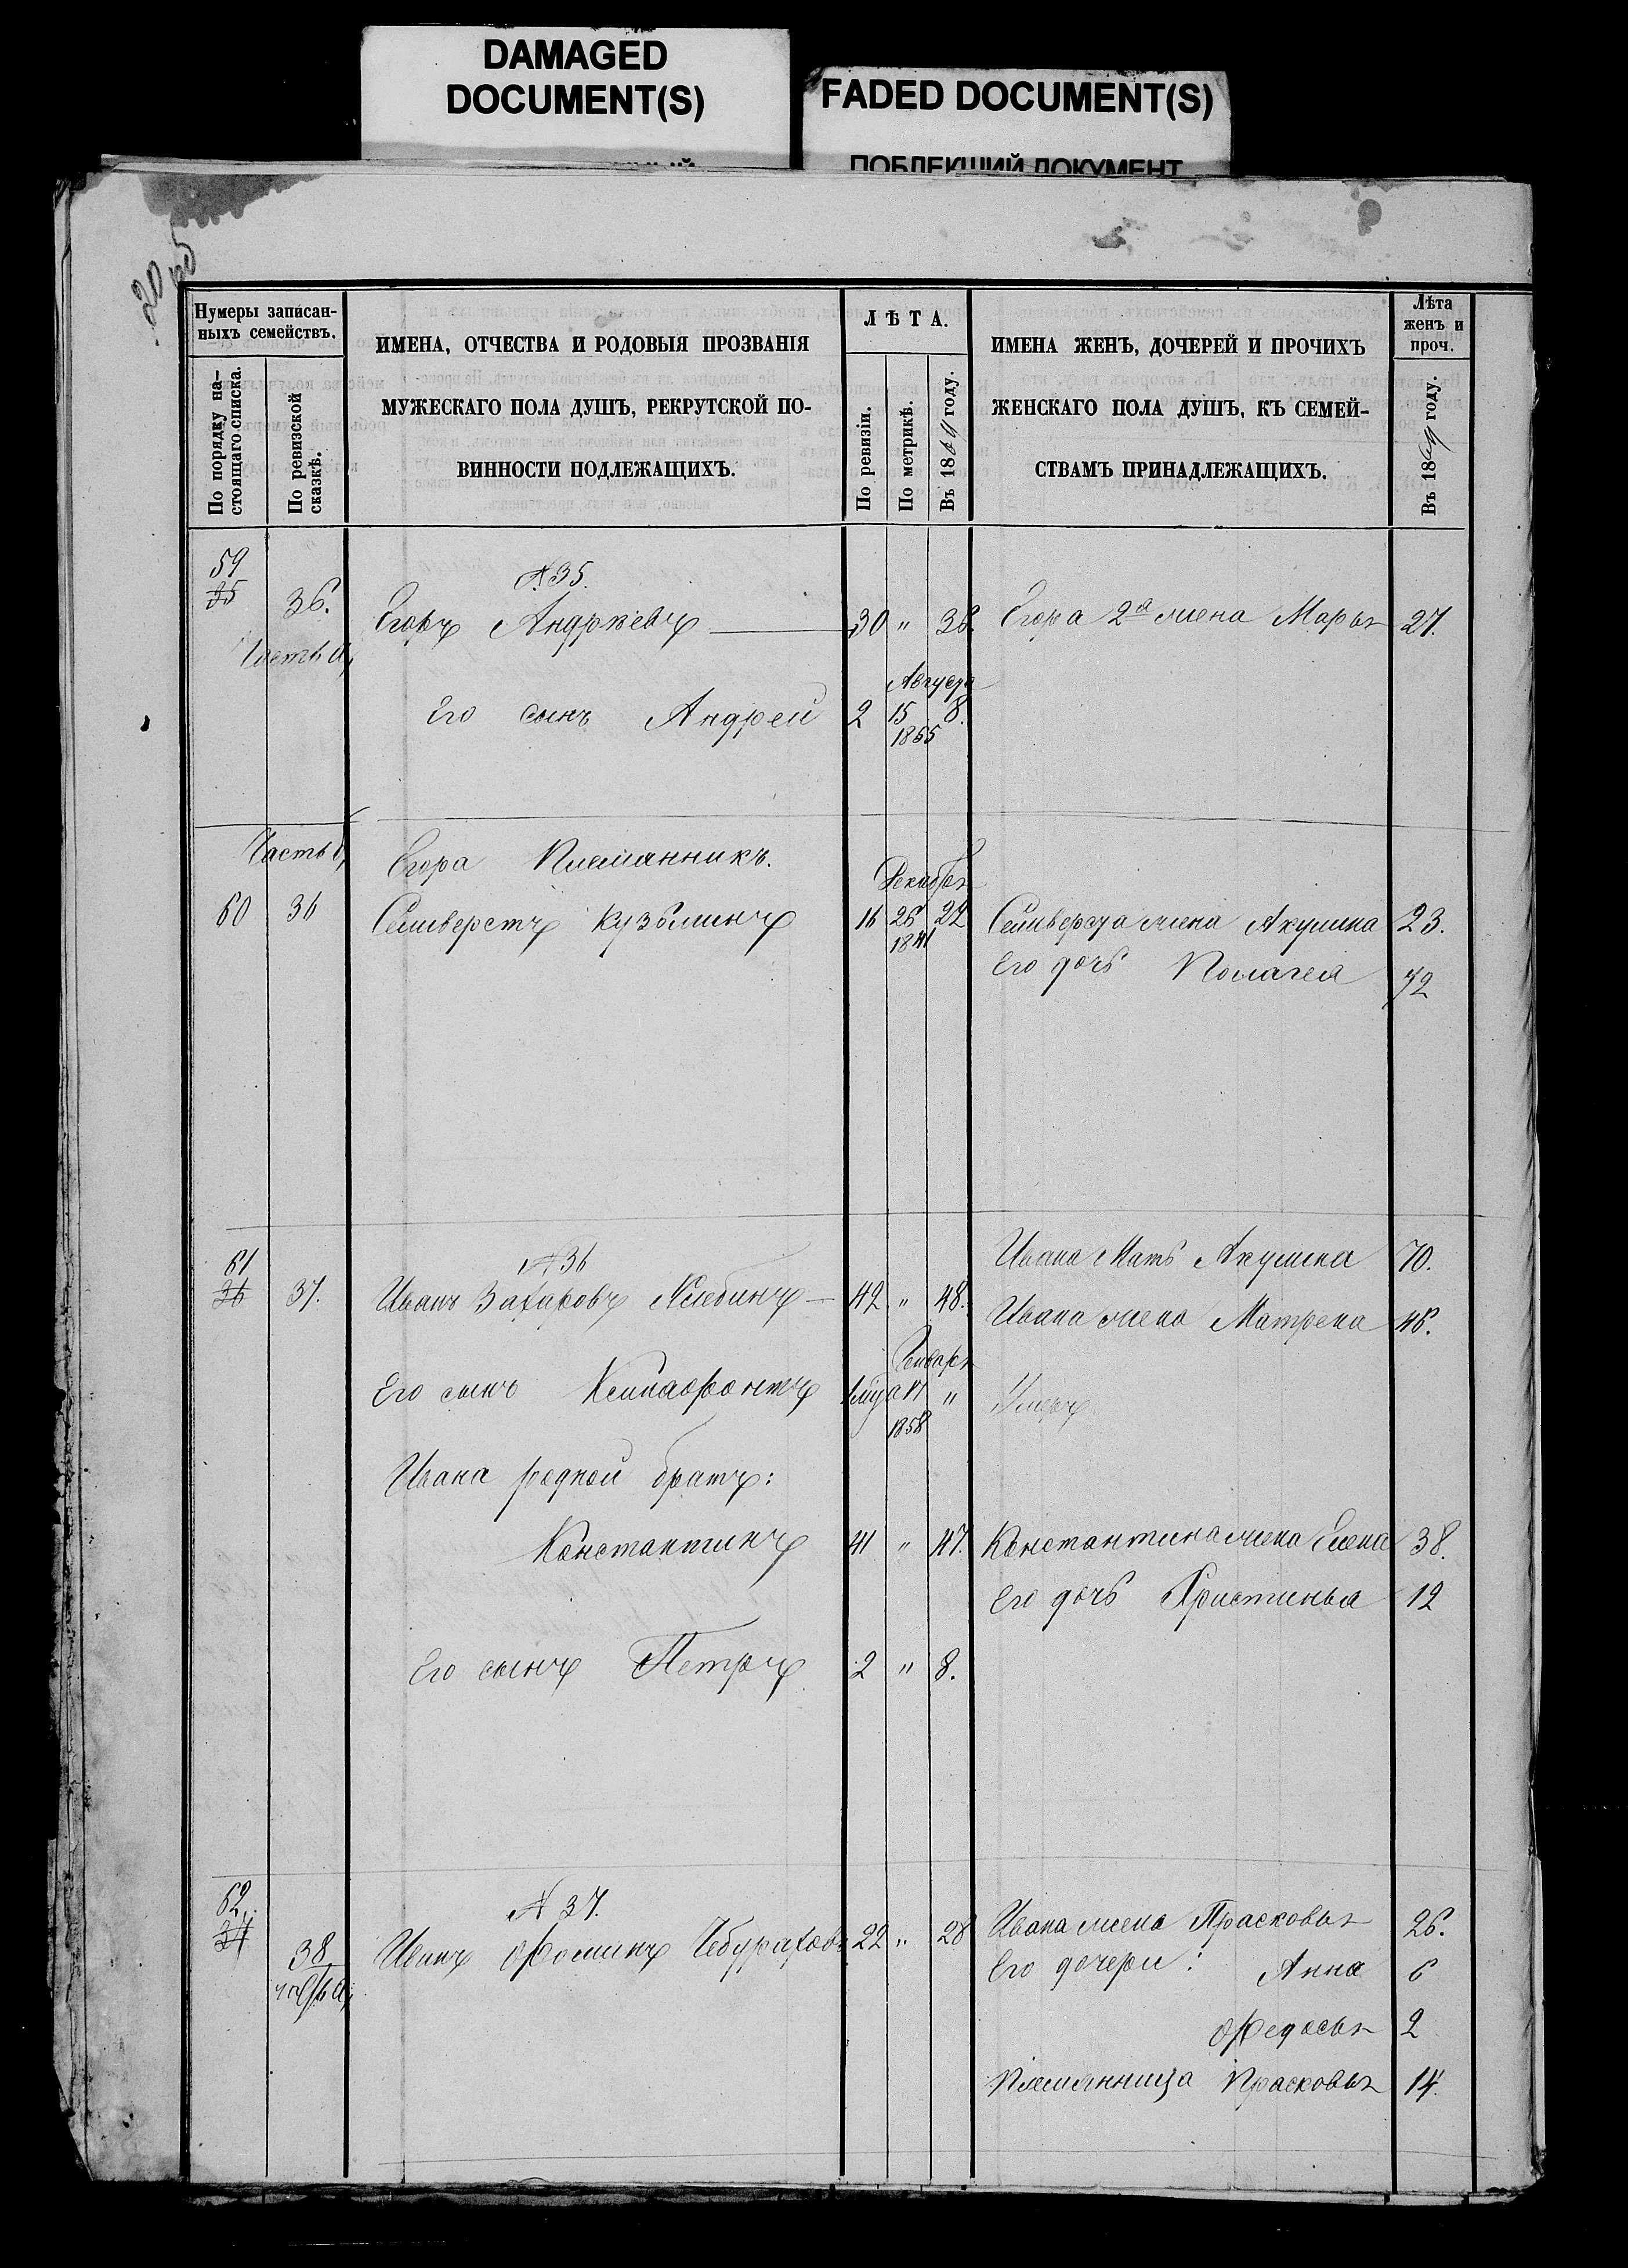 DAMAGED
DOCUMENT(S)
FADED DOCUMENT(S)
ПОБЛЕКШИЙ ДОКУМЕНТ
Нумеры записан-
ныхъ семействъ.
По порядку на-
стоящаго списка.
По ревизской
сказкѣ.
ИМЕНА, ОТЧЕСТВА И РОДОВЫЯ ПРОЗВАНІЯ
МУЖЕСКАГО ПОЛА ДУШЪ, РЕКРУТСКОЙ ПО-
ВИННОСТИ ПОДЛЕЖАЩИХЪ.
ЛѢТА.
По ревизіи.
По метрикѣ.
Въ 1864 году.
ИМЕНА ЖЕНЪ, ДОЧЕРЕЙ И ПРОЧИХЪ
ЖЕНСКАГО ПОЛА ДУШЪ, КЪ СЕМЕЙ-
СТВАМЪ ПРИНАДЛЕЖАЩИХЪ.
Лѣта
женъ и
проч.
Въ 1864 году.
59 №35.
35 36. Егоръ Андреевъ 30 " 36. Егора 2я жена Марья 27.
Часть а,
Августа
Его сынъ Андрей 2 15 8.
1855
Часть б, Егора Племянникъ.
Декабря
60 36 Селиверстъ Кузьминъ 16 26 22 Селиверста жена Акулина 23.
1841
Его дочь Полагея 1/2
Ивана Мать Акулина 70.
61 №36
36 37. Иванъ Захаровъ 42 " 48.
Ивана жена Матрена 46.
Января
Его сынъ 17 " Умеръ
1858
Ивана родной братъ:
Константинъ 41 " 47. Константина жена Елена 38.
Его дочь Христинья 12
Его сынъ Петръ 2 " 8.
62. № 37. Ивана жена Прасковья 26.
37 38 Иванъ Фоминъ Чебураховъ 22 " 28
часть а, Его дочери: Анна 6
Федосья 2
Племянница Прасковья 14.